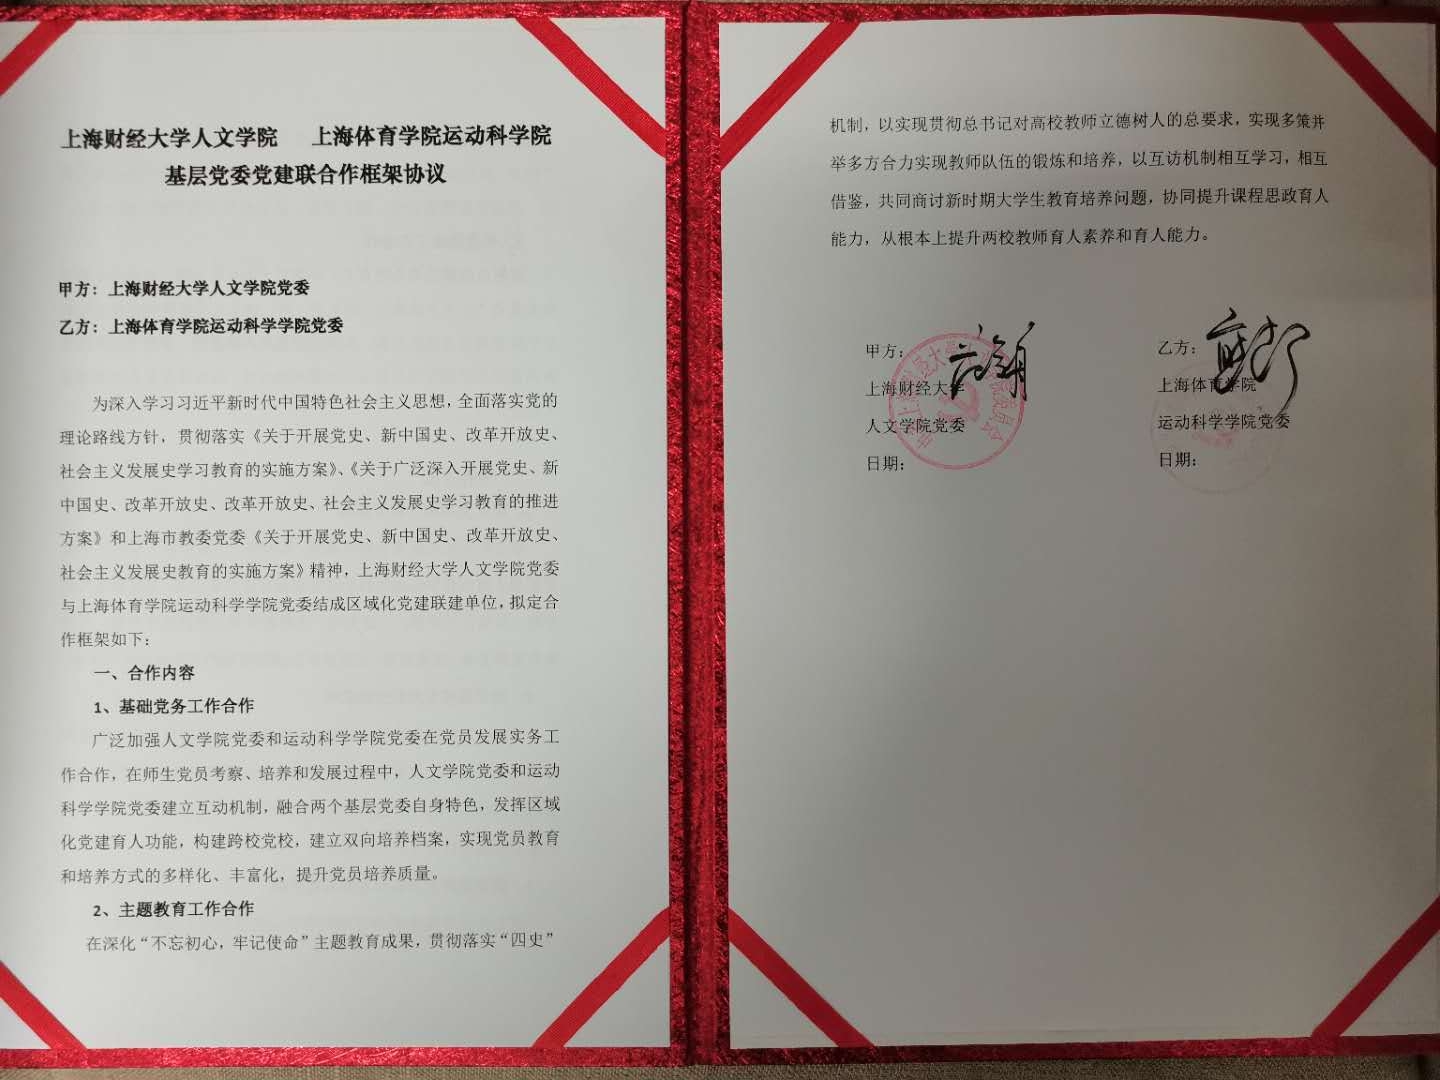 上海财经大学人文学院 上海体育学院运动科学院
基层党委党建联合作框架协议
甲方：上海财经大学人文学院党委
乙方：上海体育学院运动科学学院党委
为深入学习习近平新时代中国特色社会主义思想，全面落实党的
理论路线方针，贯彻落实《关于开展党史、新中国史、改革开放史、
社会主义发展史学习教育的实施方案》、《关于广泛深入开展党史、新
中国史、改革开放史、改革开放史、社会主义发展史学习教育的推进
方案》和上海市教委党委《关于开展党史、新中国史、改革开放史、
社会主义发展史教育的实施方案》精神，上海财经大学人文学院党委
与上海体育学院运动科学学院党委结成区域化党建联建单位，拟定合
作框架如下：
一、合作内容
1、基础党务工作合作
广泛加强人文学院党委和运动科学学院党委在党员发展实务工
作合作，在师生党员考察、培养和发展过程中，人文学院党委和运动
科学学院党委建立互动机制，融合两个基层党委自身特色，发挥区域
化党建育人功能，构建跨校党校，建立双向培养档案，实现党员教育
和培养方式的多样化、丰富化，提升党员培养质量。
2、主题教育工作合作
在深化“不忘初心，牢记使命”主题教育成果，贯彻落实“四史”
机制，以实现贯彻总书记对高校教师立德树人的总要求，实现多策并
举多方合力实现教师队伍的锻炼和培养，以互访机制相互学习，相互
借鉴，共同商讨新时期大学生教育培养问题，协同提升课程思政育人
能力，从根本上提升两校教师育人素养和育人能力。
甲方：
上海财经大学
人文学院党委
日期：
乙方：
上海体育学院
运动科学学院党委
日期：